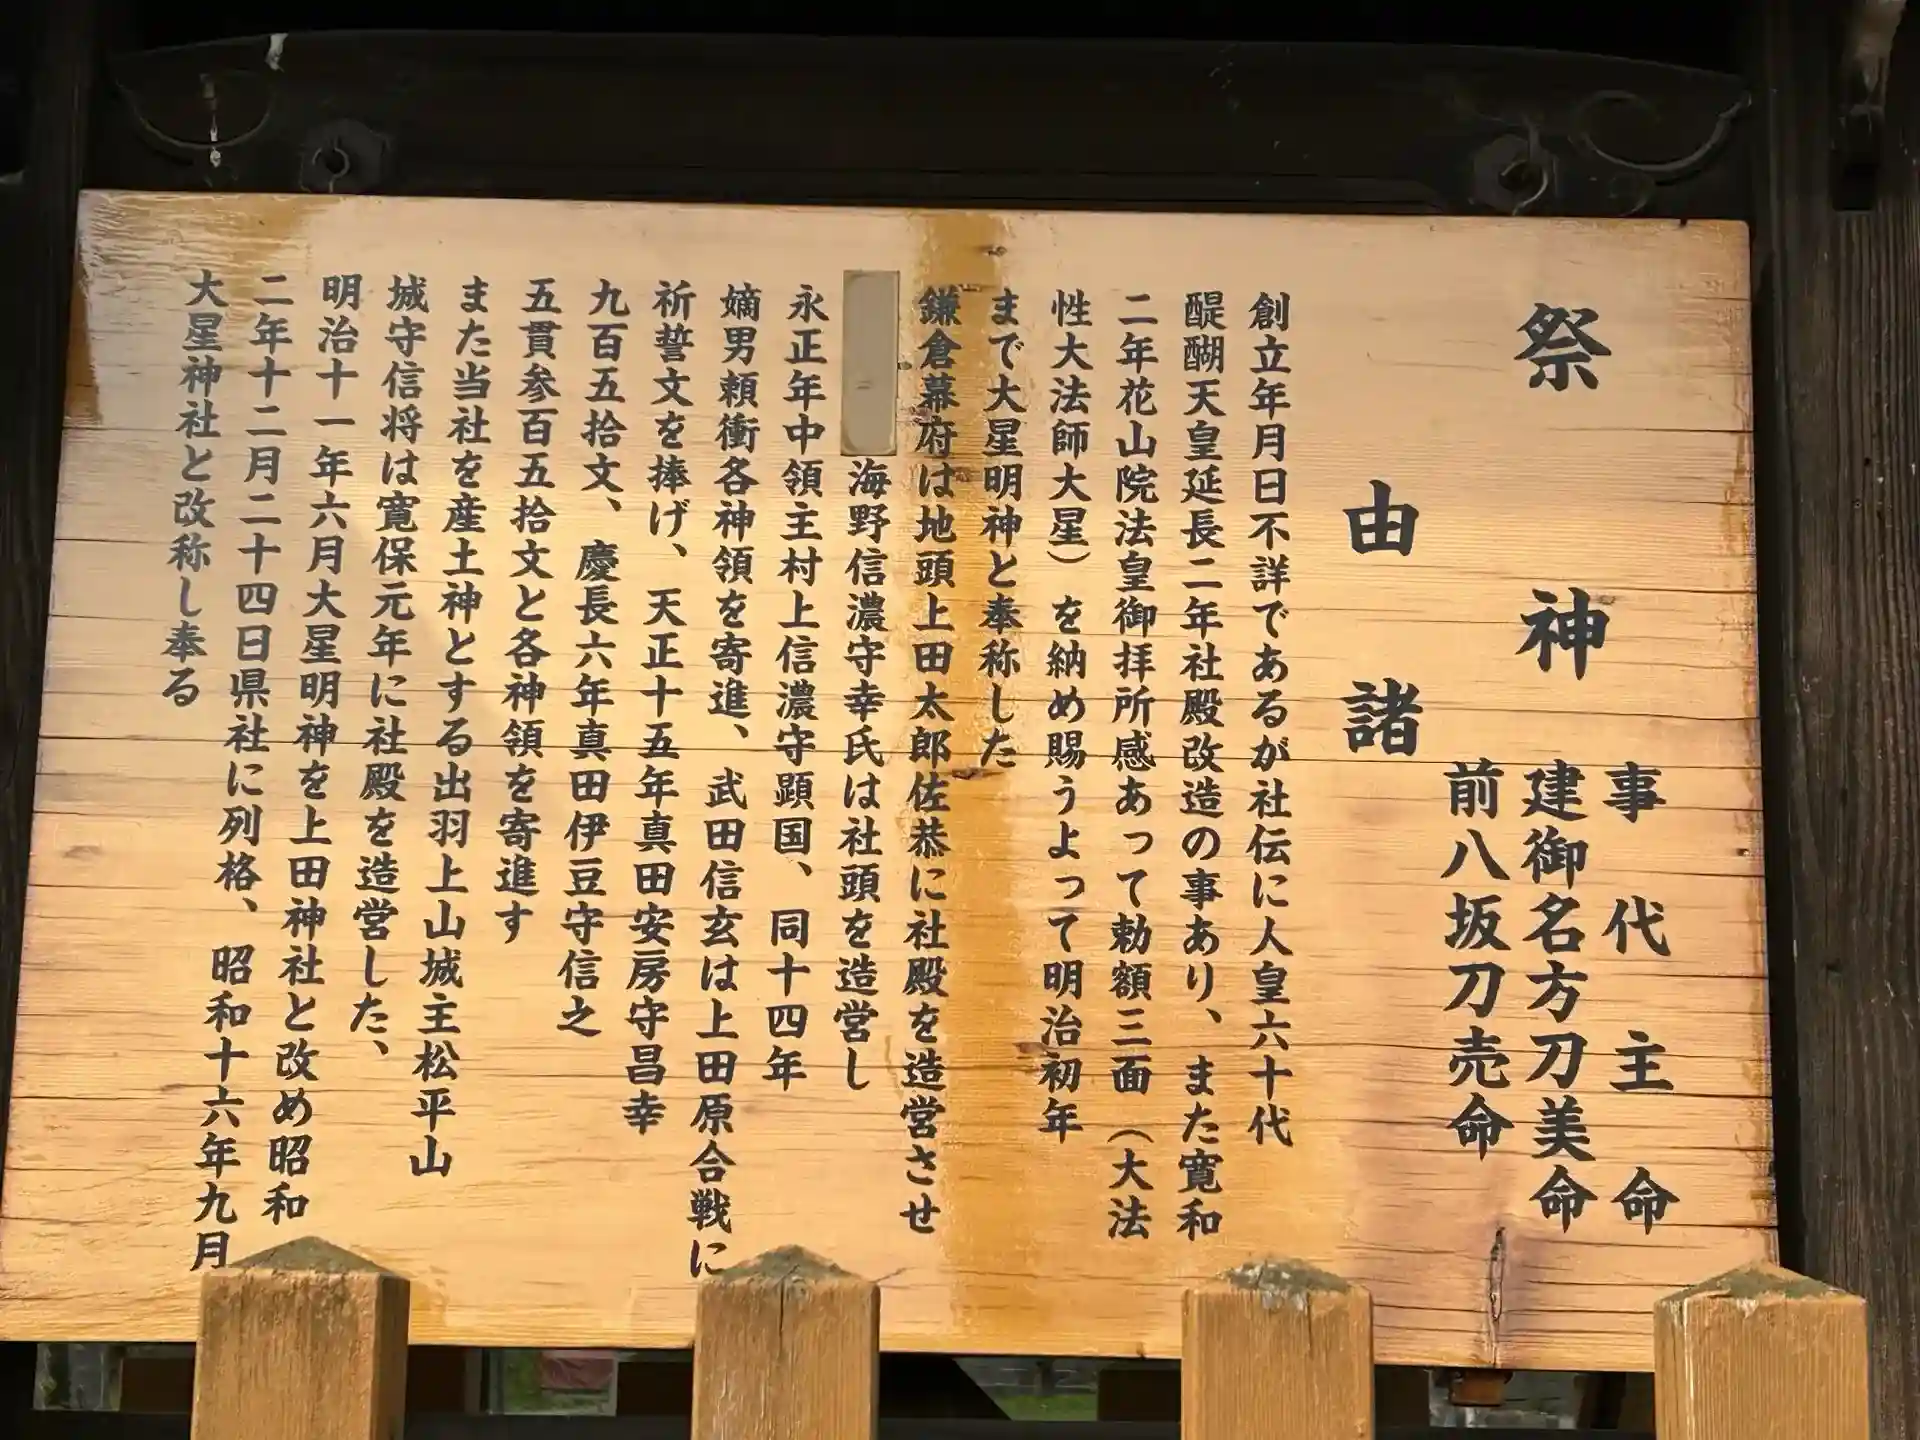 祭神
事代主命
建御名方刀美命
前八坂刀売命
由諸
創立年月日不詳であるが社伝に人皇六十代
醍醐天皇延長二年社殿改造の事あり、また寛和
二年花山院法皇御拝所感あって勅額三面（大法
性大法師大星）を納め賜うよって明治初年
まで大星明神と奉称した
鎌倉幕府は地頭上田太郎佐恭に社殿を造営させ
海野信濃守幸氏は社頭を造営し
永正年中領主村上信濃守顕国、同十四年
嫡男頼衝各神領を寄進、武田信玄は上田原合戦に
祈誓文を捧げ、天正十五年真田安房守昌幸
九百五拾文、慶長六年真田伊豆守信之
五貫参百五拾文と各神領を寄進す
また当社を産土神とする出羽上山城主松平山
城守信将は寛保元年に社殿を造営した、
明治十一年六月大星明神を上田神社と改め昭和
二年十二月二十四日県社に列格、昭和十六年九月
大星神社と改称し奉る